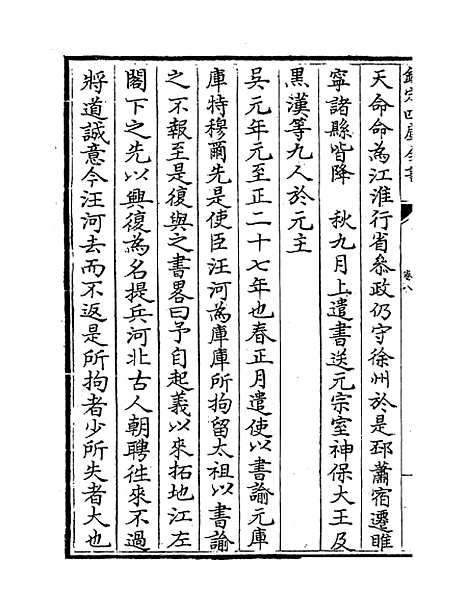 欽定四庫全書
卷八
天命命為江淮行省叅政仍守徐州於是邳蕭宿遷睢
寧諸縣皆降　秋九月上遣書送元宗室神保大王及
黑漢等九人於元主
吳元年元至正二十七年也春正月遣使以書諭元庫
庫特穆爾先是使臣汪河為庫庫所拘留太祖以書諭
之不報至是復與之書畧曰予自起義以來拓地江左
閣下之先以興復為名提兵河北古人朝聘徃來不過
將道誠意今汪河去而不返是所拘者少所失者大也